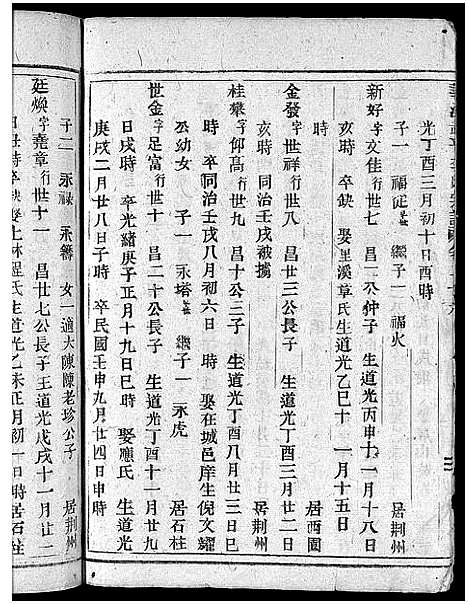 光丁酉三月初十日酉時
子一 福延 繼子一 福火 居荆州
新好字文佳行世七 昌公一仲子 生道光丙申十一月十八日
時 卒缺 娶里溪章氏生道光乙巳十一月十五日
亥時 居西園
金發字世祥行世八 昌廿三公長子 生道光丁酉三月二日
亥時 同治壬戌被擄 居荆州
桂欉字仰高行世九 昌十公三子 生道光丁酉八月廿三日巳
時 卒同治壬戌八月初六日 娶在城邑庠生倪文耀
公幼女 子一 永塔 繼子一 永虎 居石柱
世金字足富行世十 昌二十公長子 生道光丁酉十一月廿九
日戌時 卒光緒庚子正月十九日巳時 娶應氏 生道光
庚戌二月廿八日子時 卒民國壬申九月廿四日申時
子二 永祿 永簪 女一適大陳陳老珍公子 居荆州
廷煥字嘉章行世十一 昌廿七公長子 生道光戊戌十一月廿二
氏生道光乙未正月初一日時居石柱